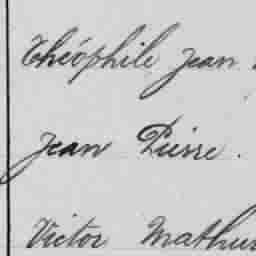 Théophile Jean
Jean Pierre.
Victor Mathur